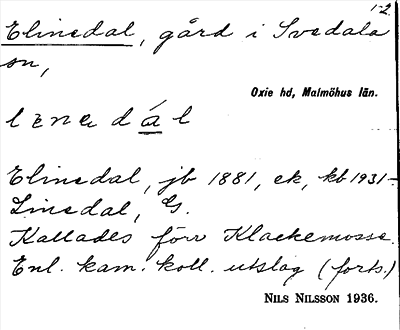 1-2.
Elinedal, gård i Svedala
sn,
Oxie hd, Malmöhus län.
Elinedal, jb 1881, ek, kb 1931-
Linedal, G.
Kallades förr Klackemosse.
Enl. kam. koll. utslag (forts.)
NILS NILSSON 1936.